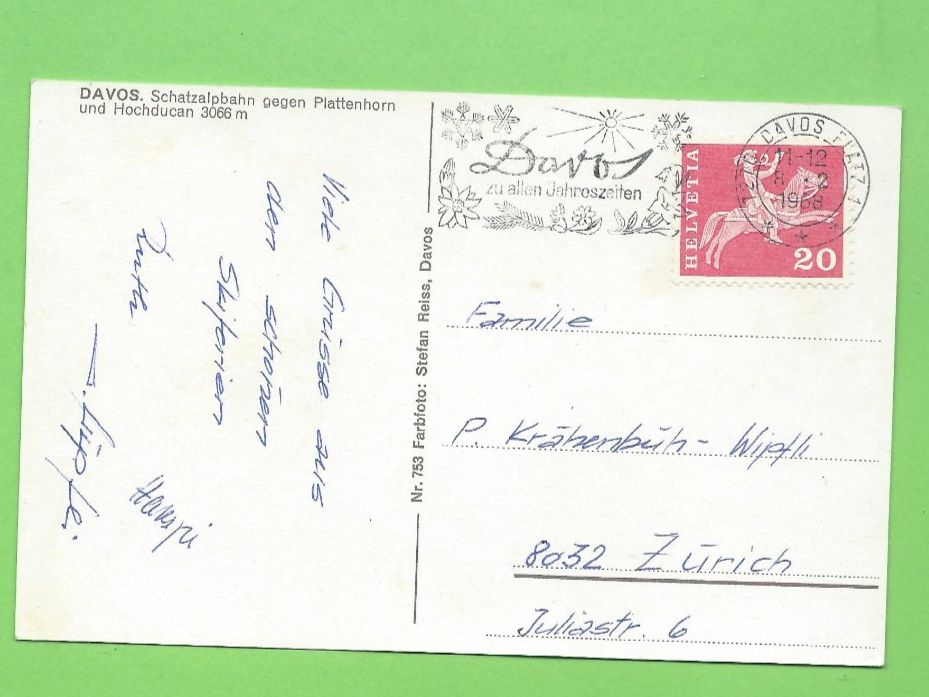 DAVOS. Schatzalpbahn gegen Plattenhorn
und Hochducan 3066 m
Viele Grüsse aus
den schönen
Skiferien
Ruth
Hanspi
Nr. 753 Farbfoto: Stefan Reiss, Davos
Davos
zu allen Jahreszeiten
DAVOS PLATZ 1
11-12
8.-2
1968
HELVETIA
20
Familie
P. Krähenbüh- Wipfli
8032 Zürich
Juliastr. 6